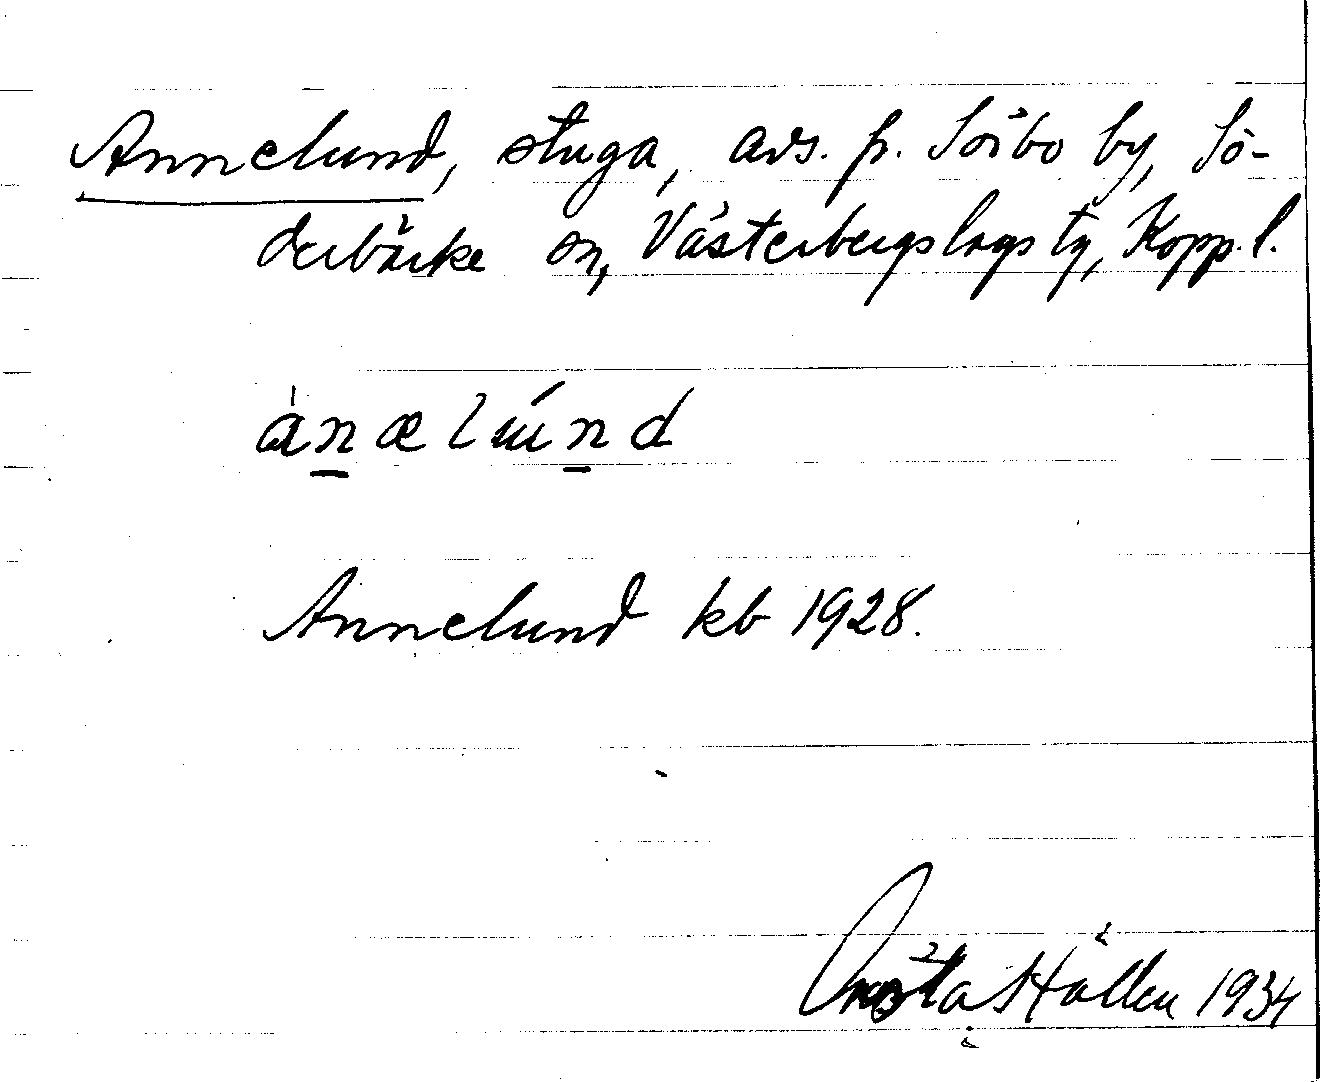 Annelund, stuga, avs. fr. Sörbo by, Sö-
derbärke sn, Västerbergslags tg, Kopp. l.
ànælúnd
Annelund kb 1928.
Hållen 1934